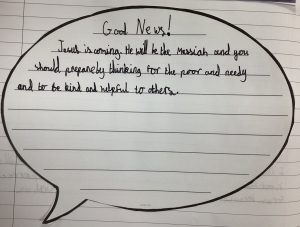 Good News!
Jesus is coming. He will be the Messiah and you
should prepare by thinking for the poor and needy
and to be kind and helpful to others.